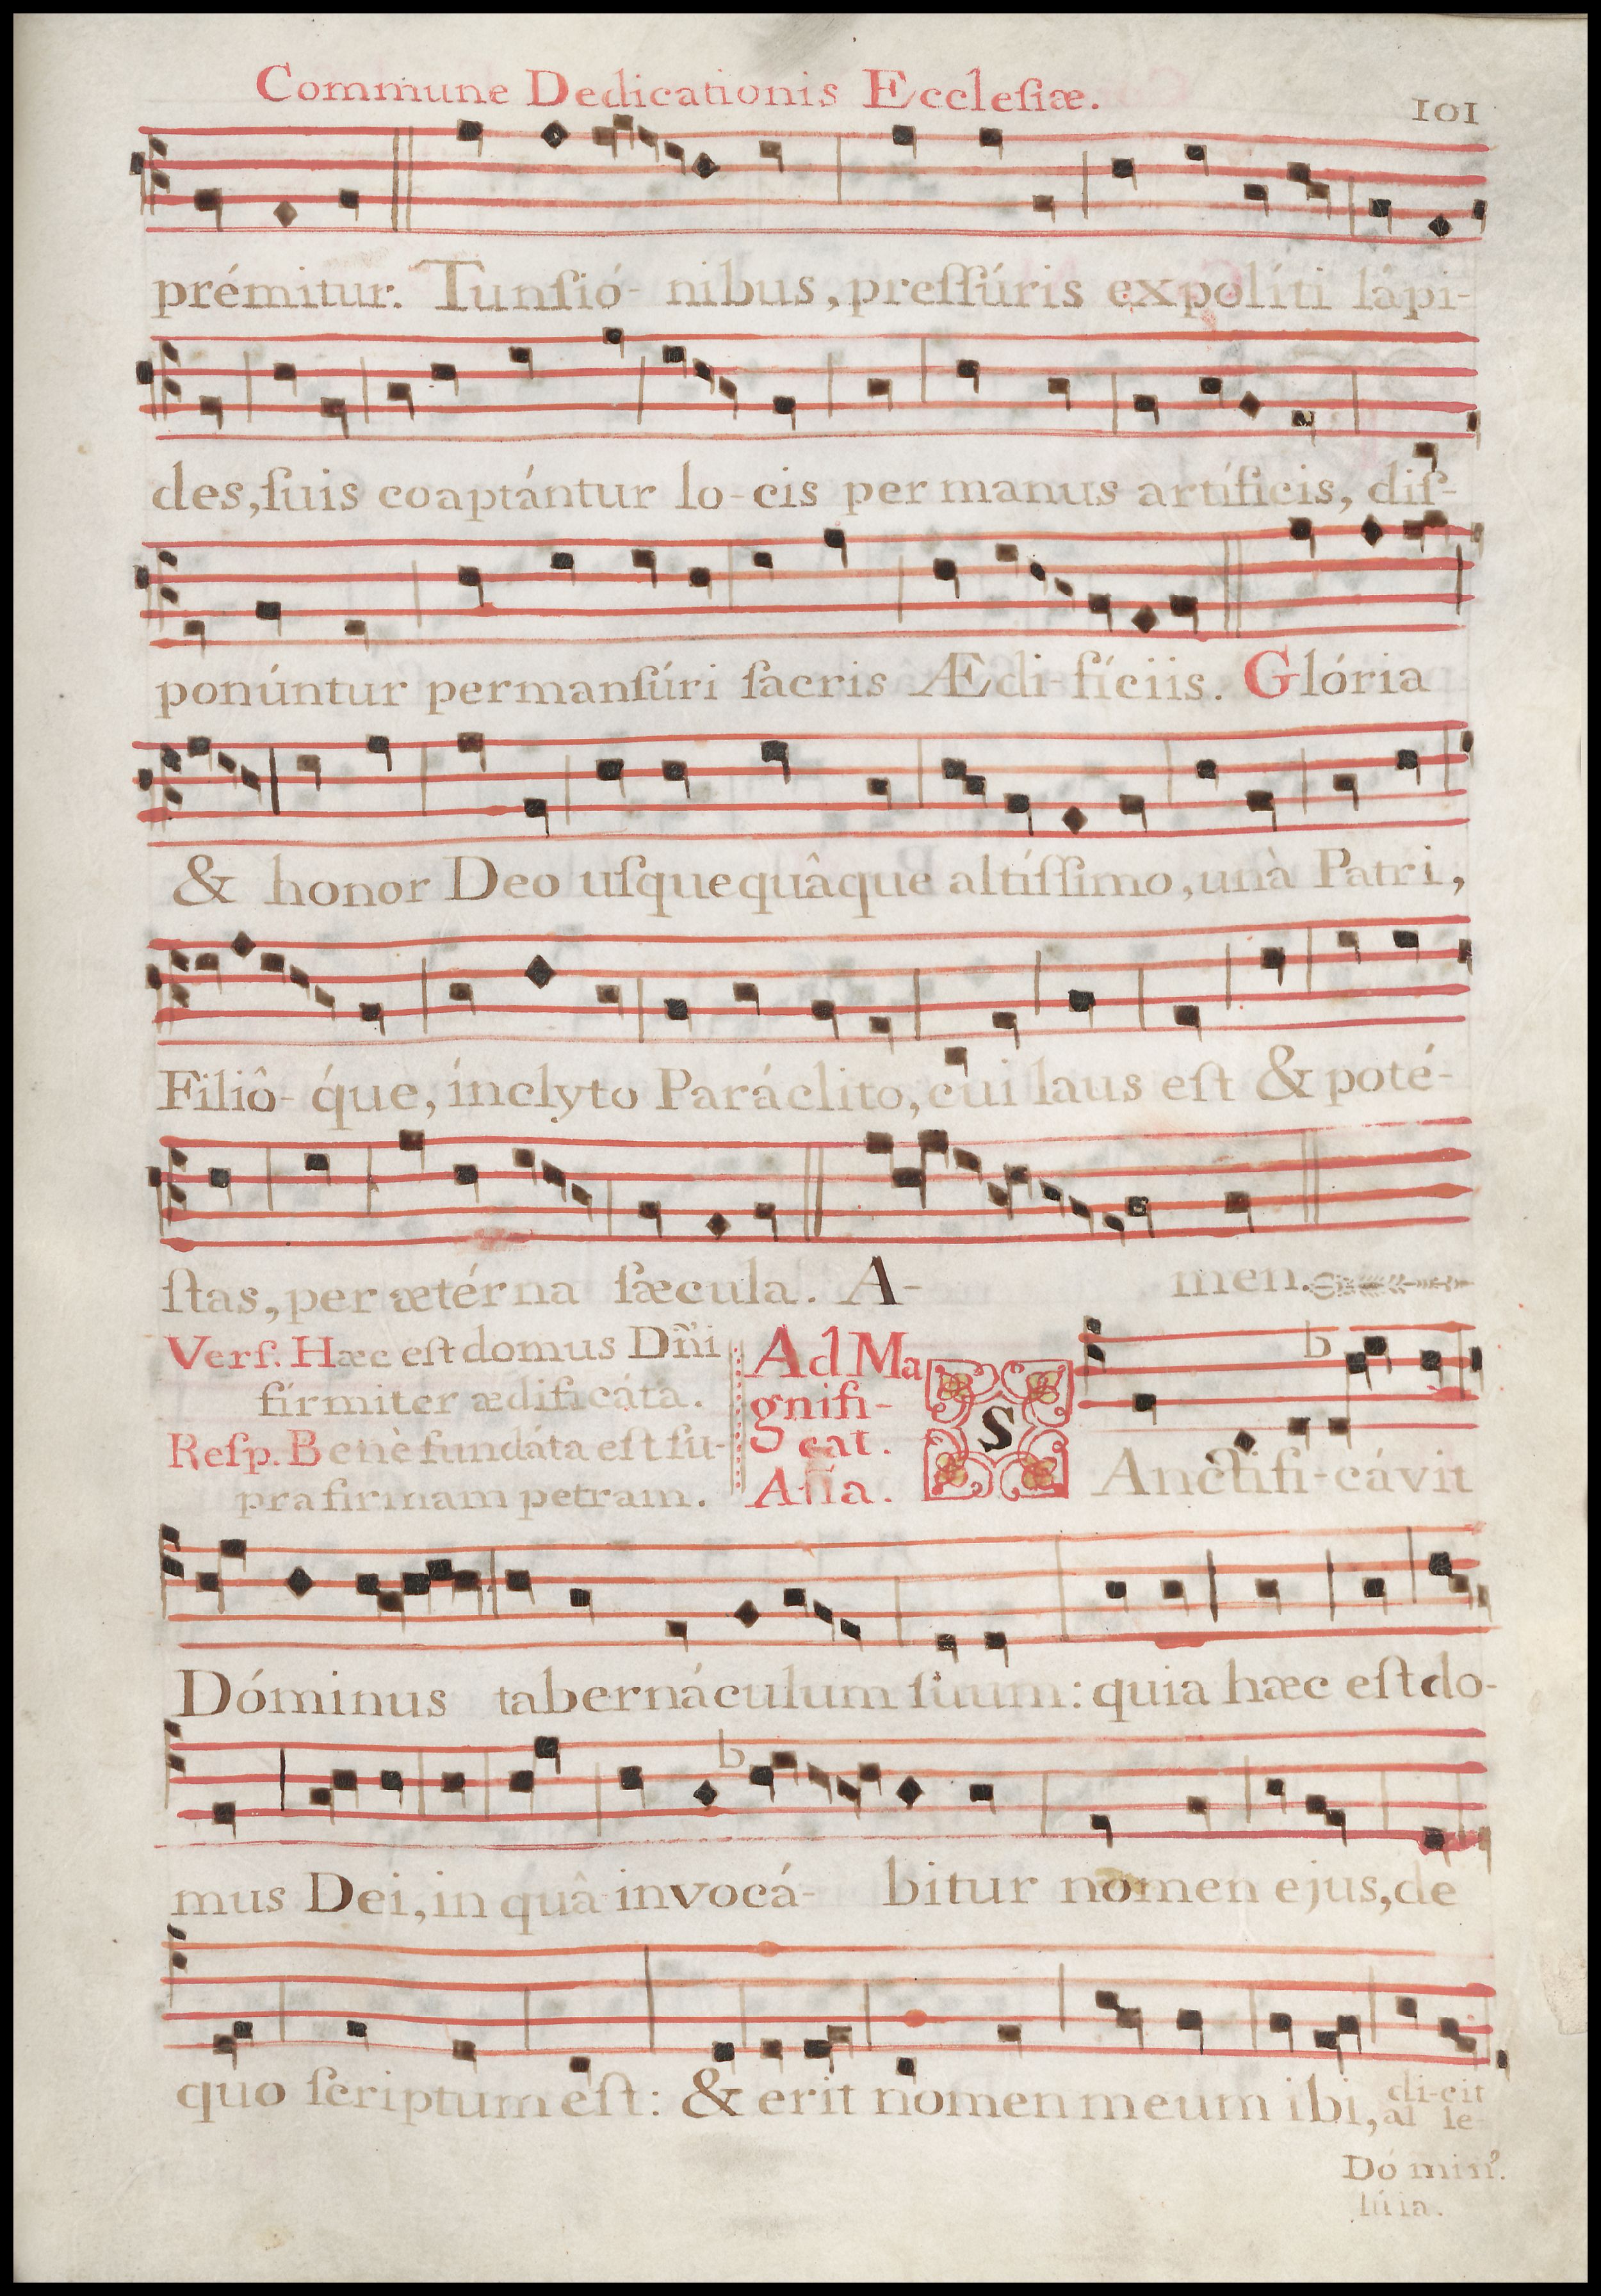 Commune Dedicationis Eccleſiæ.
101
prémitur. Tunſió- nibus, preſſúris expolíti lápi-
des, ſuis coaptántur lo-cis per manus artíficis, diſ-
ponúntur permanſúri ſacris Ædi-fíciis. Glória
& honor Deo uſquequâque altíſſimo, unà Patri,
Filiô- q́ue, ínclyto Paráclito, cui laus eſt & poté-
ſtas, per ætérna ſæcula. A- men.
Verſ. Hæc eſt domus Dñi
fírmiter ædificáta.
Reſp. Benè fundáta eſt ſu-
pra firmam petram.
Ad Ma
gnifi-
cat.
Aña.
S
b
Anctifi-cávit
Dóminus tabernáculum ſuum: quia hæc eſt do-
b
mus Dei, in quâ invocá- bitur nomen ejus, de
quo ſcriptum eſt: & erit nomen meum ibi, di-cit
al le-
Dó minꝰ.
lúia.